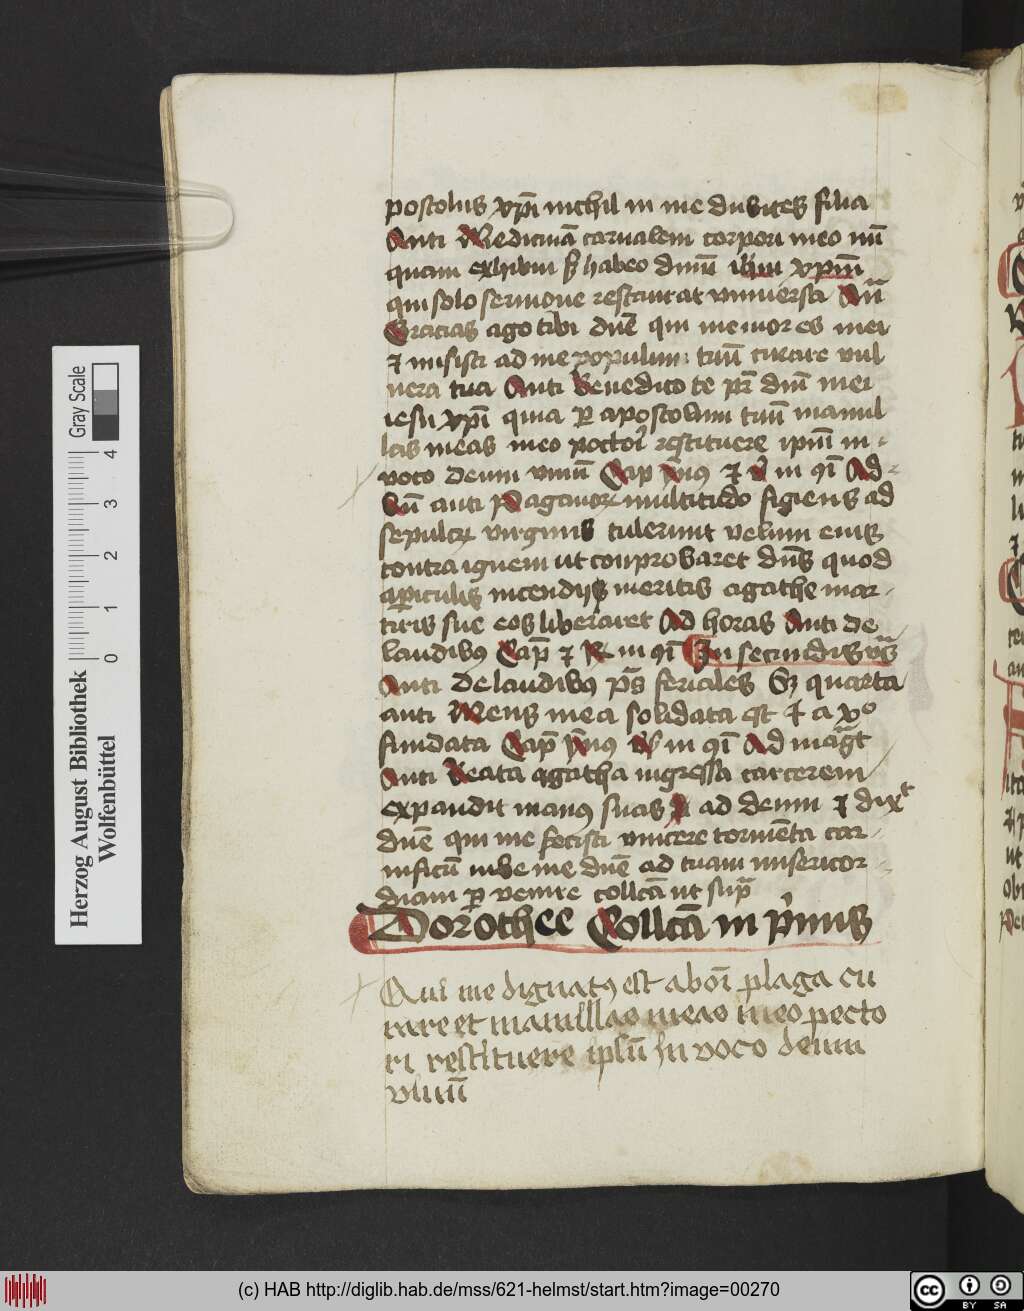 postolus xpi nichil in me dubites filia
Anti Medicinā carnalem corpori meo nū
quam exhibui ſʒ habeo dnm̄ ihm xpm̄
qui solo sermone restaurat universa An̄
Gracias ago tibi dn̄e qui memor es mei
⁊ misisti ad me populum tuū curare vul
nera tua Anti Benedico te pr̄ dnī mei
iesu xpī quia ꝑ apostolum tuū mamil
las meas meo pectori restituere ipm̄ in-
voco deum vivū Cap p̄mꝰ ⁊ v̄ in qī Ad-
bn̄ anti Paganorꝝ multitudo fugiens ad
sepulcrꝝ virginis tulerunt velum eius
contra ignem ut conprobaret dn̄s quod
aꝑiculis incendijs meritis agathe mar-
tiris sue eos liberaret Ad horas Anti de
laudibꝰ Cap̄ ⁊ R in qī In secundis vs̄
Anti de laudibꝰ ps̄ feriales Sʒ quarta
anti Mens mea solidata est ⁊ a xo
fundata Cap̄ p̄mꝰ v in qī Ad mag̅t
Anti Beata agatha ingressa carcerem
expandit manꝰ suas ad deum ⁊ dixt
dn̄e qui me fecisti vincere tormēta car-
nificū iube me dn̄e ad tuam misericor-
diam ꝑ venire collcā ut sup̄
Dorothee Collcā in p̄mis
Qui me dignatꝰ est ab oī plaga cu
rare et mamillas meas meo pecto
ri restituere ipsū in voco deum
vivū
Herzog August Bibliothek
Wolfenbüttel
Gray Scale
0 1 2 3 4
(c) HAB http://diglib.hab.de/mss/621-helmst/start.htm?image=00270
cc BY SA